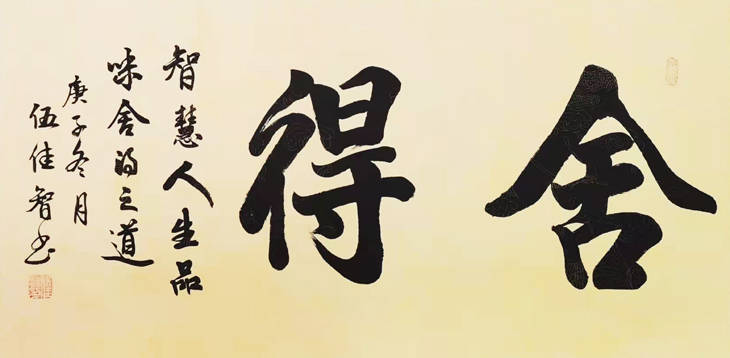 舍得
智慧人生品
味舍得之道
庚子冬月
伍佳智书